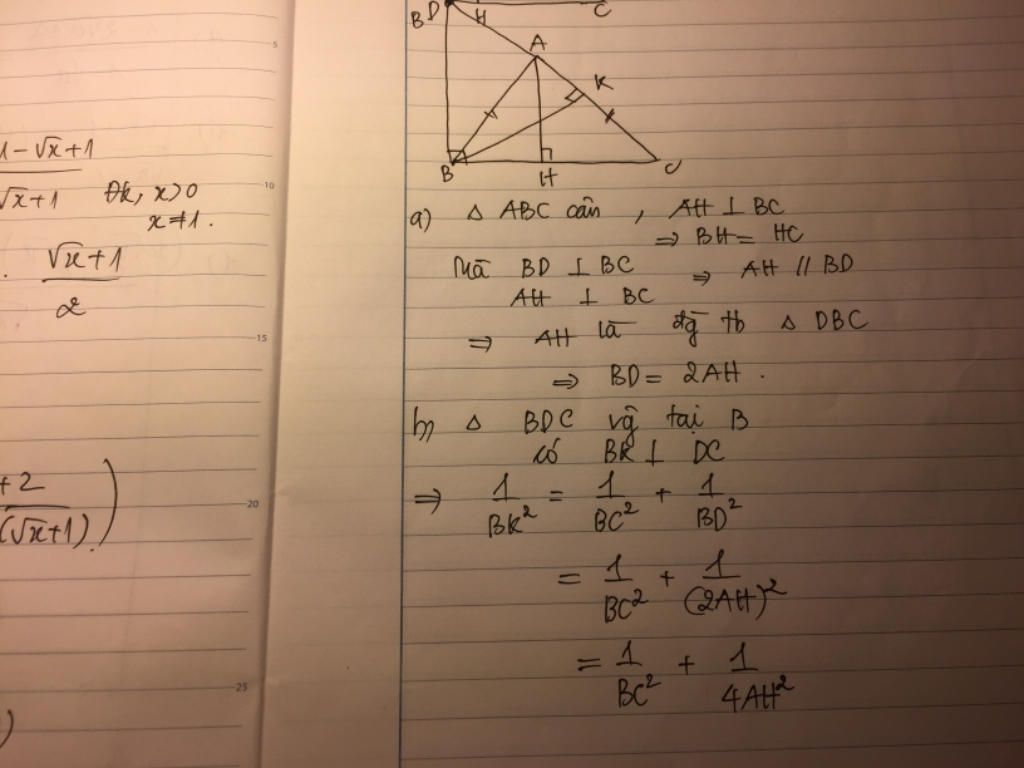 1 - √x + 1
√x + 1 Đk, x > 0
x ≠ 1.
√x + 1
2
+ 2
(√x + 1)
5
10
15
20
25
B D H C
A
K
B H C
a) Δ ABC cân , AH ⊥ BC
⇒ BH = HC
Mà BD ⊥ BC ⇒ AH // BD
AH ⊥ BC
⇒ AH là đg tb Δ DBC
⇒ BD = 2AH .
b, Δ BDC vg tại B
có BK ⊥ DC
⇒ 1/BK² = 1/BC² + 1/BD²
= 1/BC² + 1/(2AH)²
= 1/BC² + 1/4AH²